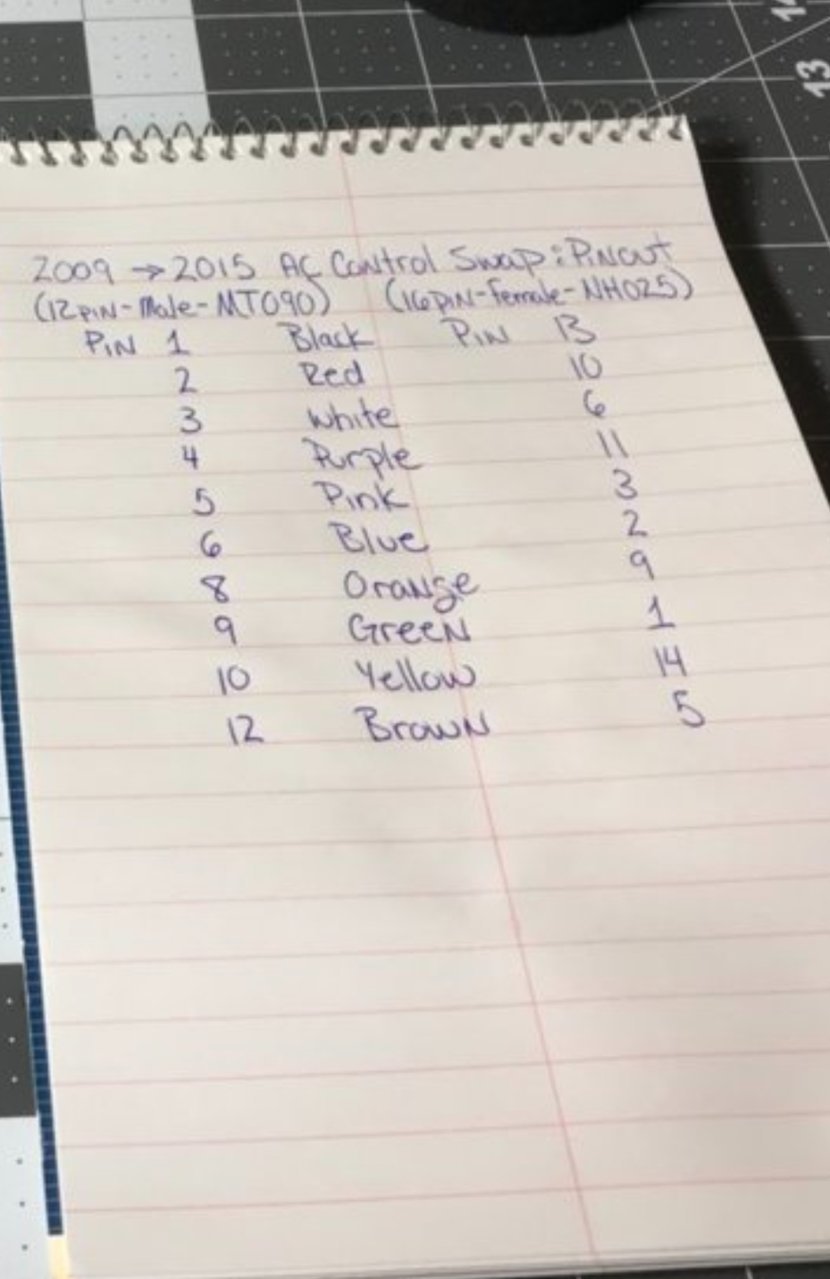 2009 → 2015 AC Control Swap: Pinout
(12pin-Male-MT090) (16pin-Female-NH025)
Pin 1 Black Pin 13
2 Red 10
3 White 6
4 Purple 11
5 Pink 3
6 Blue 2
8 Orange 9
9 Green 1
10 Yellow 14
12 Brown 5
14
13